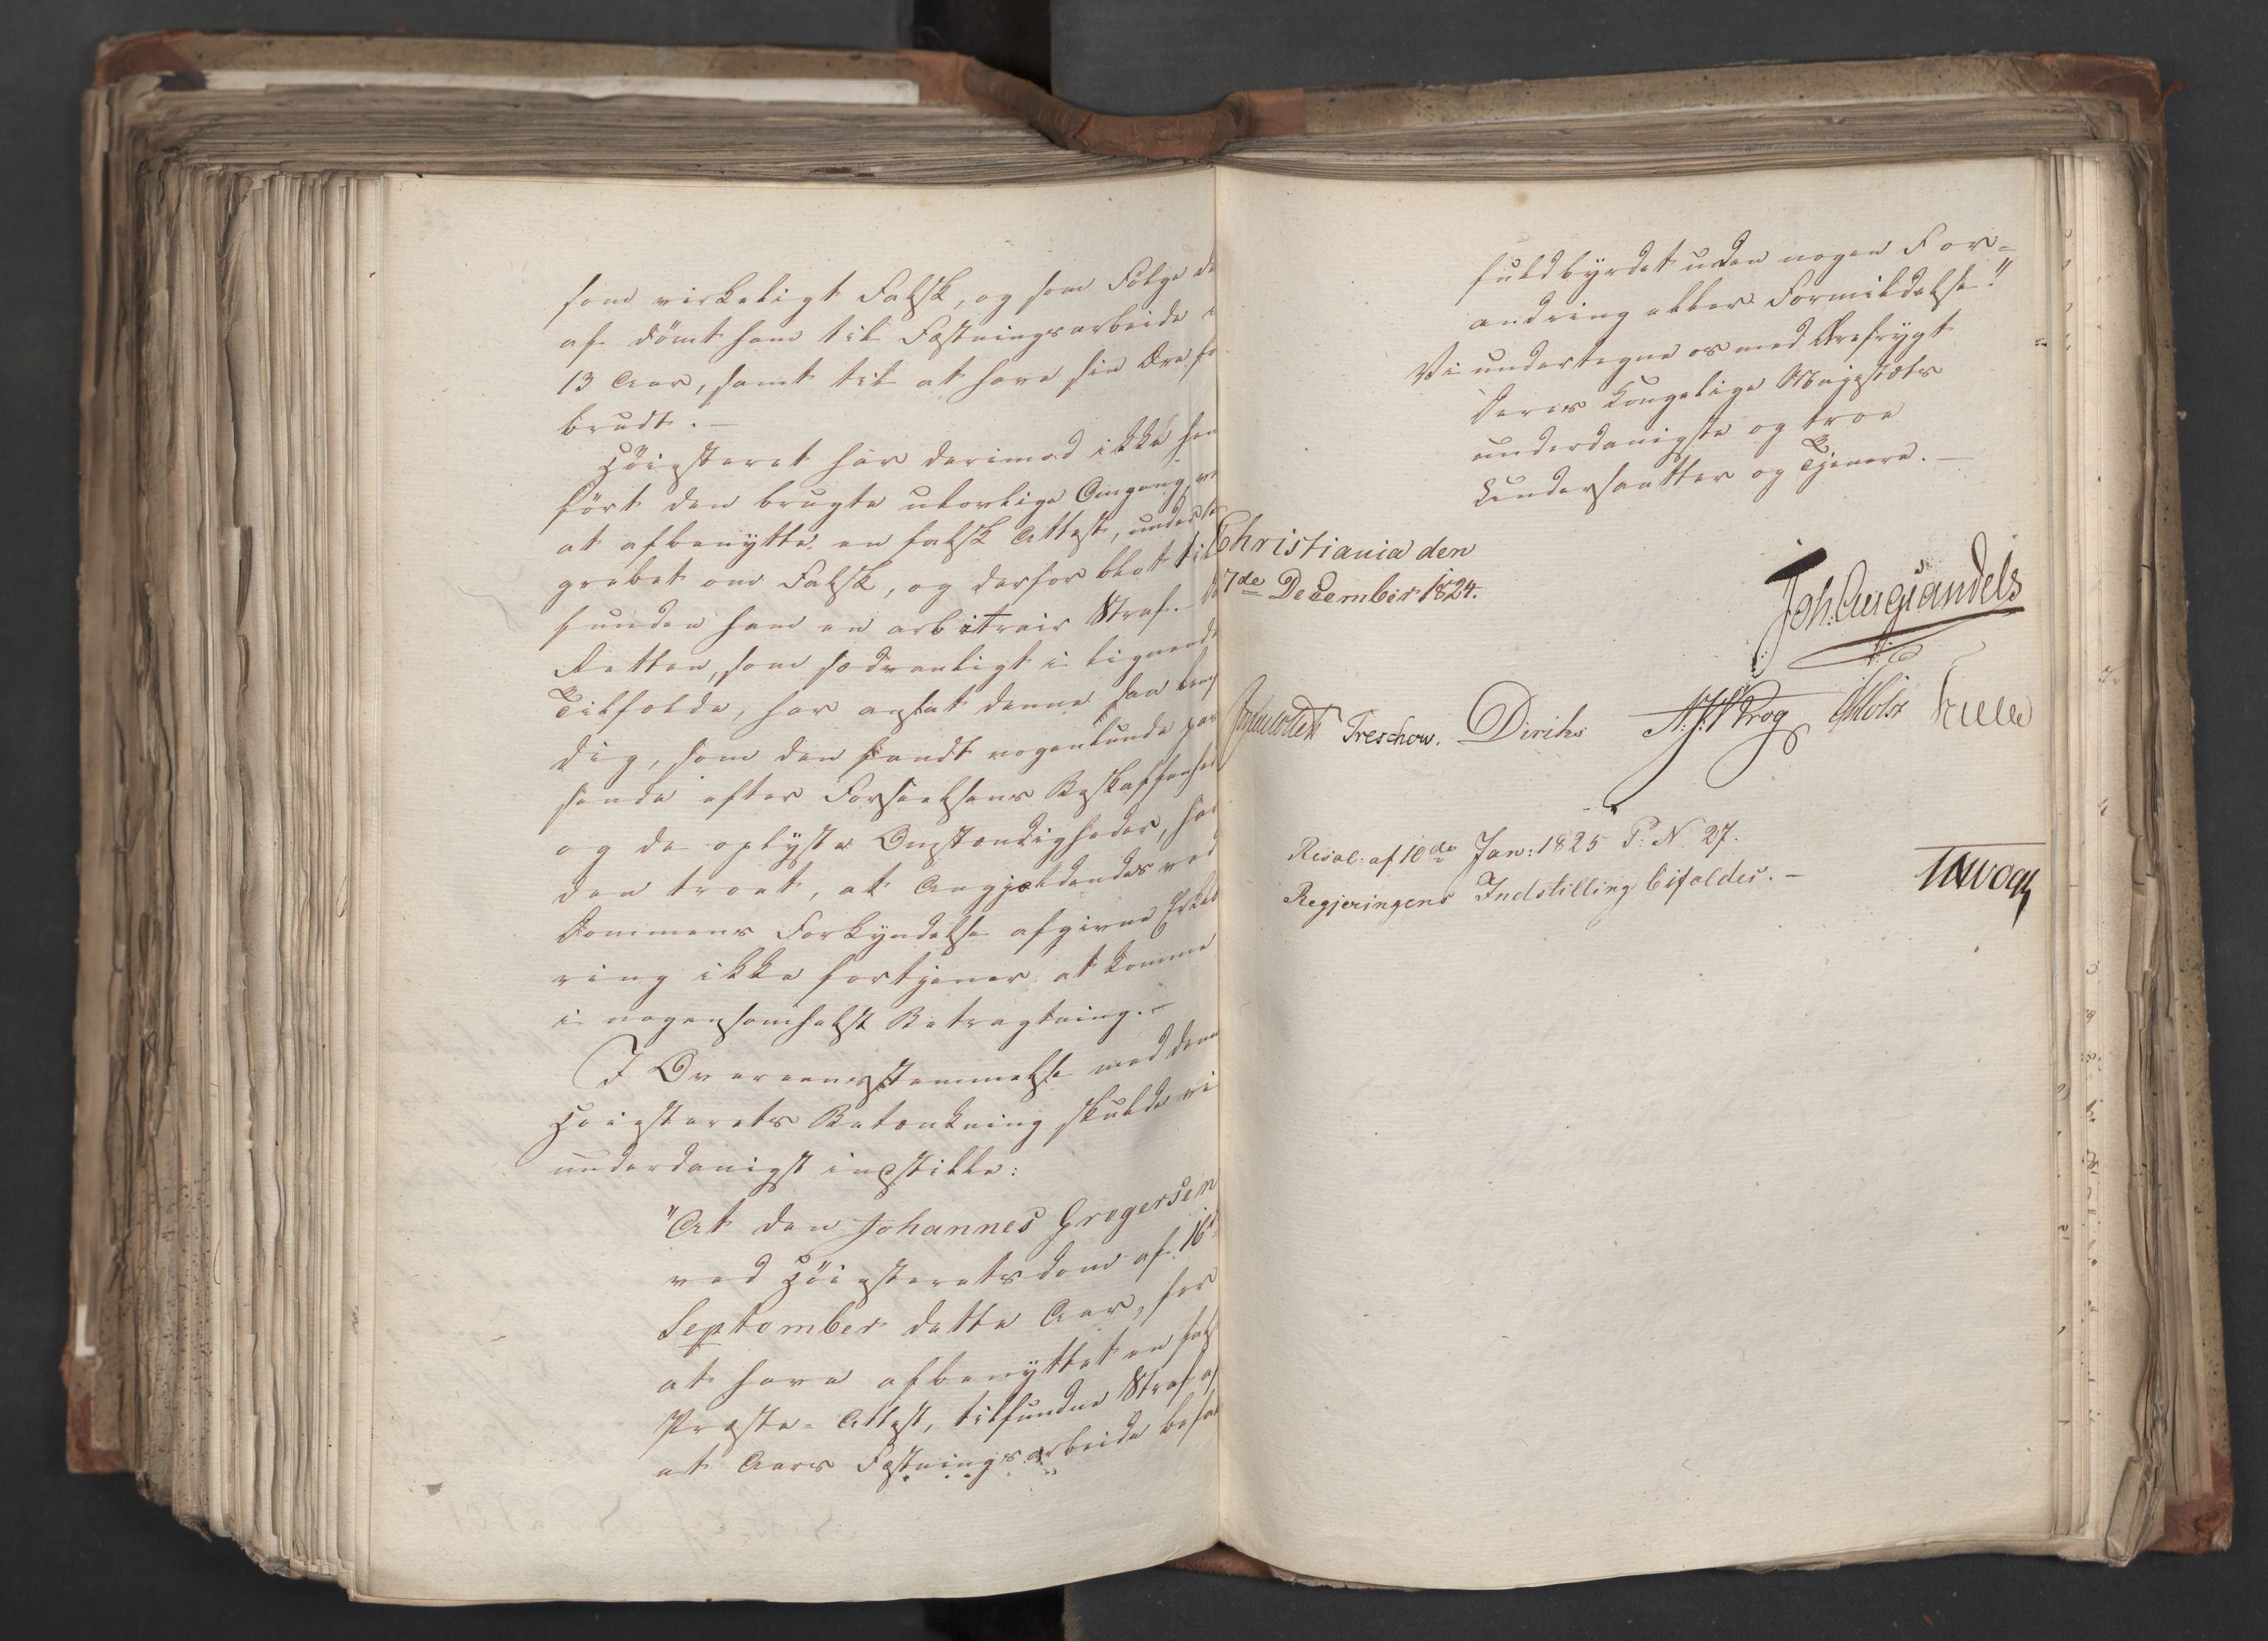 som virkeligt Falsk, og som Følge de
af dømt ham til Fæstningsarbeide i
13 Aar, samt til at have sin Ære for
brudt. —
Høiesteret har derimod ikke hen
ført den brugte ulovlige Omgang, ve
at afbenytte en falsk Attest, under Be
grebet om Falsk, og derfor blot til
funden ham en arbitrair Straf. —
Retten, som sædvanligt i lignende
Tilfælde, har ansat denne saa lem
dig, som den fandt nogenlunde pas
sende efter Forseelsens Beskaffenhed
og de oplyste Omstændigheder, har
den troet, at Angjeldendes ved
Dommens Forkyndelse afgivne Erklæ
ring ikke fortjener at komme
i nogensomhelst Betragtning. —
I Overeensstemmelse med denne
Høiesterets Betænkning skulde vi
underdanigst indstille:
"At den Johannes Grogersen
ved Høiesteretsdom af 16de
September dette Aar, for
at have afbenyttet en falsk
Præste-Attest, tilfundne Straf af
et Aars Fæstningsarbeide befal
fuldbyrdet uden nogen For-
andring eller Formildelse."
Vi undertegne os med Ærefrygt
Deres Kongelige Majestæts
underdanigste og troe
Undersaatter og Tjenere. —
Christiania den
7de December 1824.
Joh: Aug: Sandels
Treschow. Diriks
Resol: af 10de Jan: 1825 P: N. 27.
Regjeringens Indstilling bifaldes. —